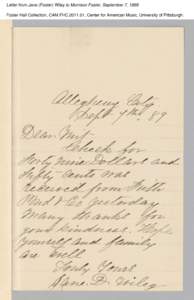 Letter from Jane (Foster) Wiley to Morrison Foster, September 7, 1889
Foster Hall Collection, CAM.FHC.2011.01, Center for American Music, University of Pittsburgh.
Allegheny City
Sept. 7th 89
Dear Mit
Check for
Forty nine Dollars and
Fifty Cents was
received from
yesterday
Many thanks for
your kindness. Hope
yourself and family
are well
Truly Yours
Jane D. Wiley